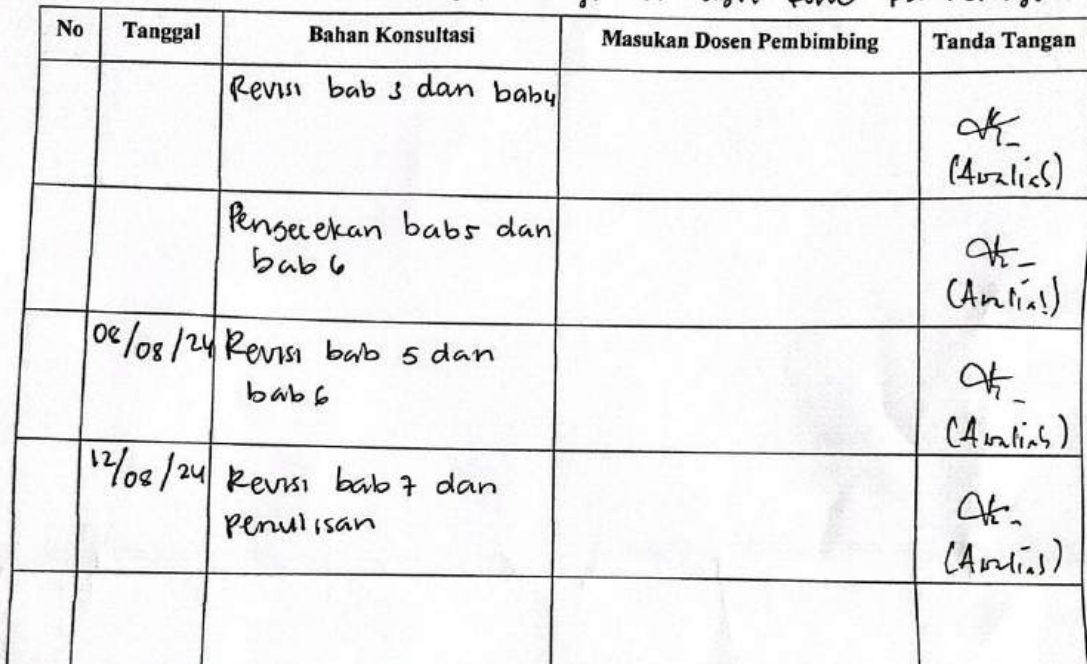 No Tanggal Bahan Konsultasi Masukan Dosen Pembimbing Tanda Tangan
Revisi bab 3 dan bab 4
Pengecekan bab 5 dan
bab 6
08/08/24 Revisi bab 5 dan
bab 6
12/08/24 Revisi bab 7 dan
penulisan